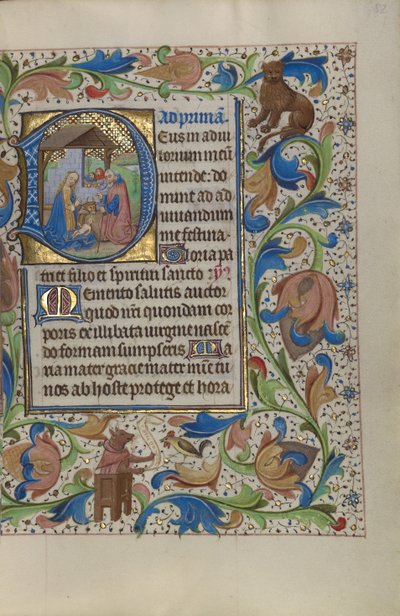 Ad primā
Deus in adiu
torium meū
intende: do
mine ad ad
iuuandum
me festina
Gloria pa
tri et filio et spiritui sancto
Memento salutis auctor
quod nr̄i quondam cor
poris ex illibata uirgine nascē
do formam sumpseris Ma
ria mater gracie mater mīe tu
nos ab hoste protege et hora